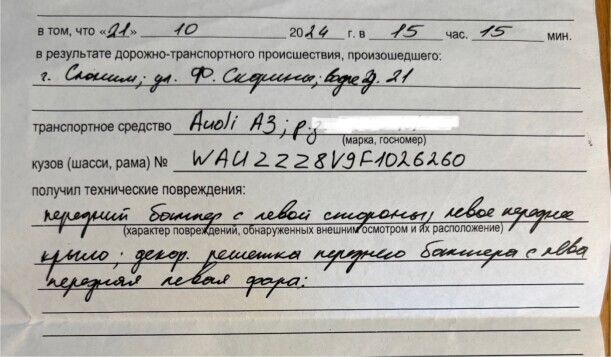 в том, что «21» 10 2024 г. в 15 час. 15 мин.
в результате дорожно-транспортного происшествия, произошедшего:
г. Слоним; ул. Ф. Скорины; возле д. 21
транспортное средство Audi A3; р.з
(марка, госномер)
кузов (шасси, рама) № WAUZZZ8V9F1026260
получил технические повреждения:
передний бампер с левой стороны; левое переднее
(характер повреждений, обнаруженных внешним осмотром и их расположение)
крыло; декор. решетка переднего бампера с лева
передняя левая фара;